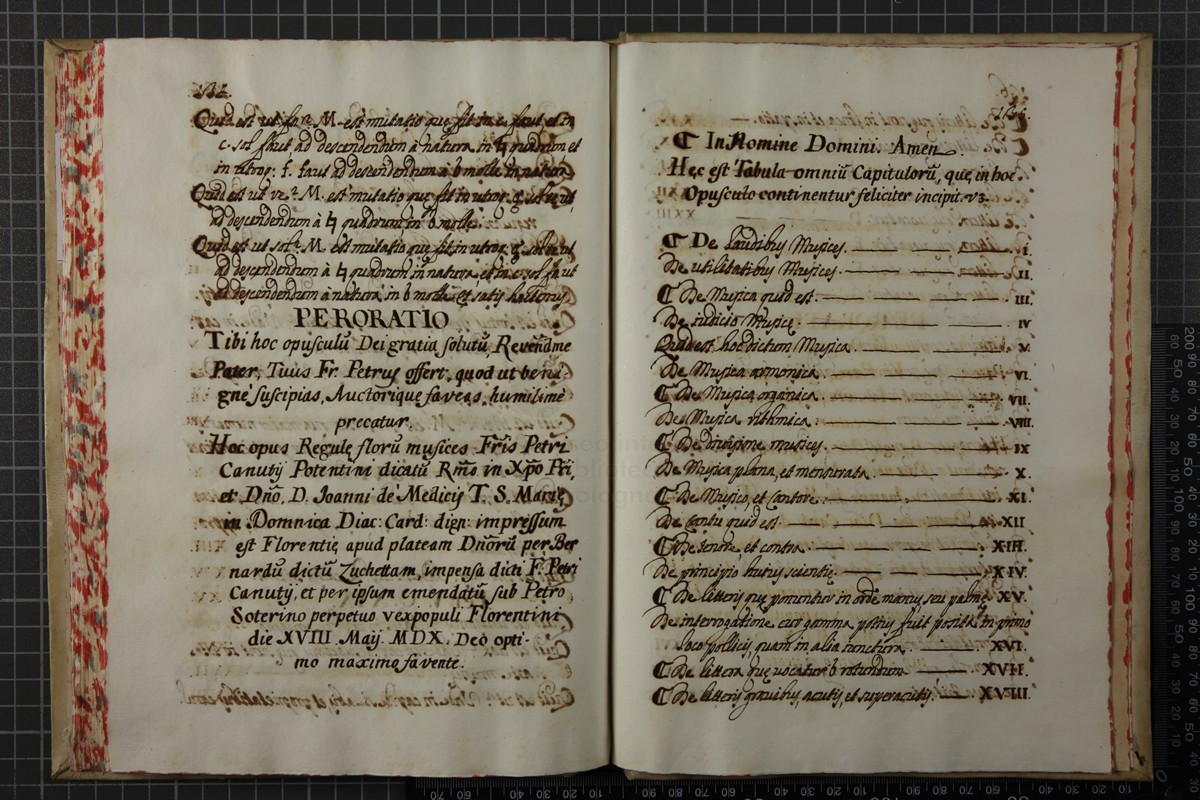 Quid est ut fa? M. est mutatio que fit in c. faut et in
c. sol faut ad descendendum à natura in ♮ quadrum et
in utroq; f. faut ad descendendum à b molle in natura
Quid est ut re? M. est mutatio que fit in utroq; g. sol re ut
ad descendendum à ♮ quadrum in b molle.
Quid est ut sol? M. est mutatio que fit in utroq; g. sol re ut
ad descendendum à ♮ quadrum in natura, et in c. sol fa ut
ad descendendum à natura in b molle et satis hactenus.
PERORATIO
Tibi hoc opusculũ Dei gratia solutũ, Reverẽdme
Pater, Tuus Fr. Petrus offert, quod ut beni
gnè suscipias, Auctorique faveas, humilimè
precatur.
Hoc opus Regulę florũ musices Fris Petri
Canutij Potentini dicatũ Rms in Xpo Pri,
et Dño, D. Joanni de Medicis T. S. Marię
in Domnica Diac: Card: dign: impressum
est Florentię apud plateam Dñorũ per Ber
nardũ dictũ Zuchettam, impensa dicti F. Petri
Canutij, et per ipsum emendatũ sub Petro
Soterino perpetuo vexpopuli Florentini
die XVIII Maij MDX. Deo opti-
mo maximo favente.
¶ In Nomine Domini. Amen.
Hęc est Tabula omniũ Capitulorũ, quę in hoc
Opusculo continentur feliciter incipit. v3.
¶ De laudibus Musices. I.
De utilitatibus Musices. II.
¶ De Musica quid est. III.
De iudicio Musicę. IV
Quid est hoc dictum Musica. V.
De Musica armonica. VI.
¶ De Musica organica. VII.
De Musica rithmica. VIII.
¶ De divisione musices. IX
De Musica plana, et mensurata. X.
¶ De Musico, et cantore. XI.
De Cantu quid est. XII
¶ De tenore, et contra. XIII.
De principio huius scientię. XIV.
¶ De litteris que ponuntur in ordẽ manus, seu palmę XV.
De interrogatione cur gamma potius fuit posita in primo
loco pollicis, quam in alia iunctura. XVI.
¶ De littera que vocatur b rotundum XVII.
¶ De litteris gravibus, acutis, et superacutis. XVIII.